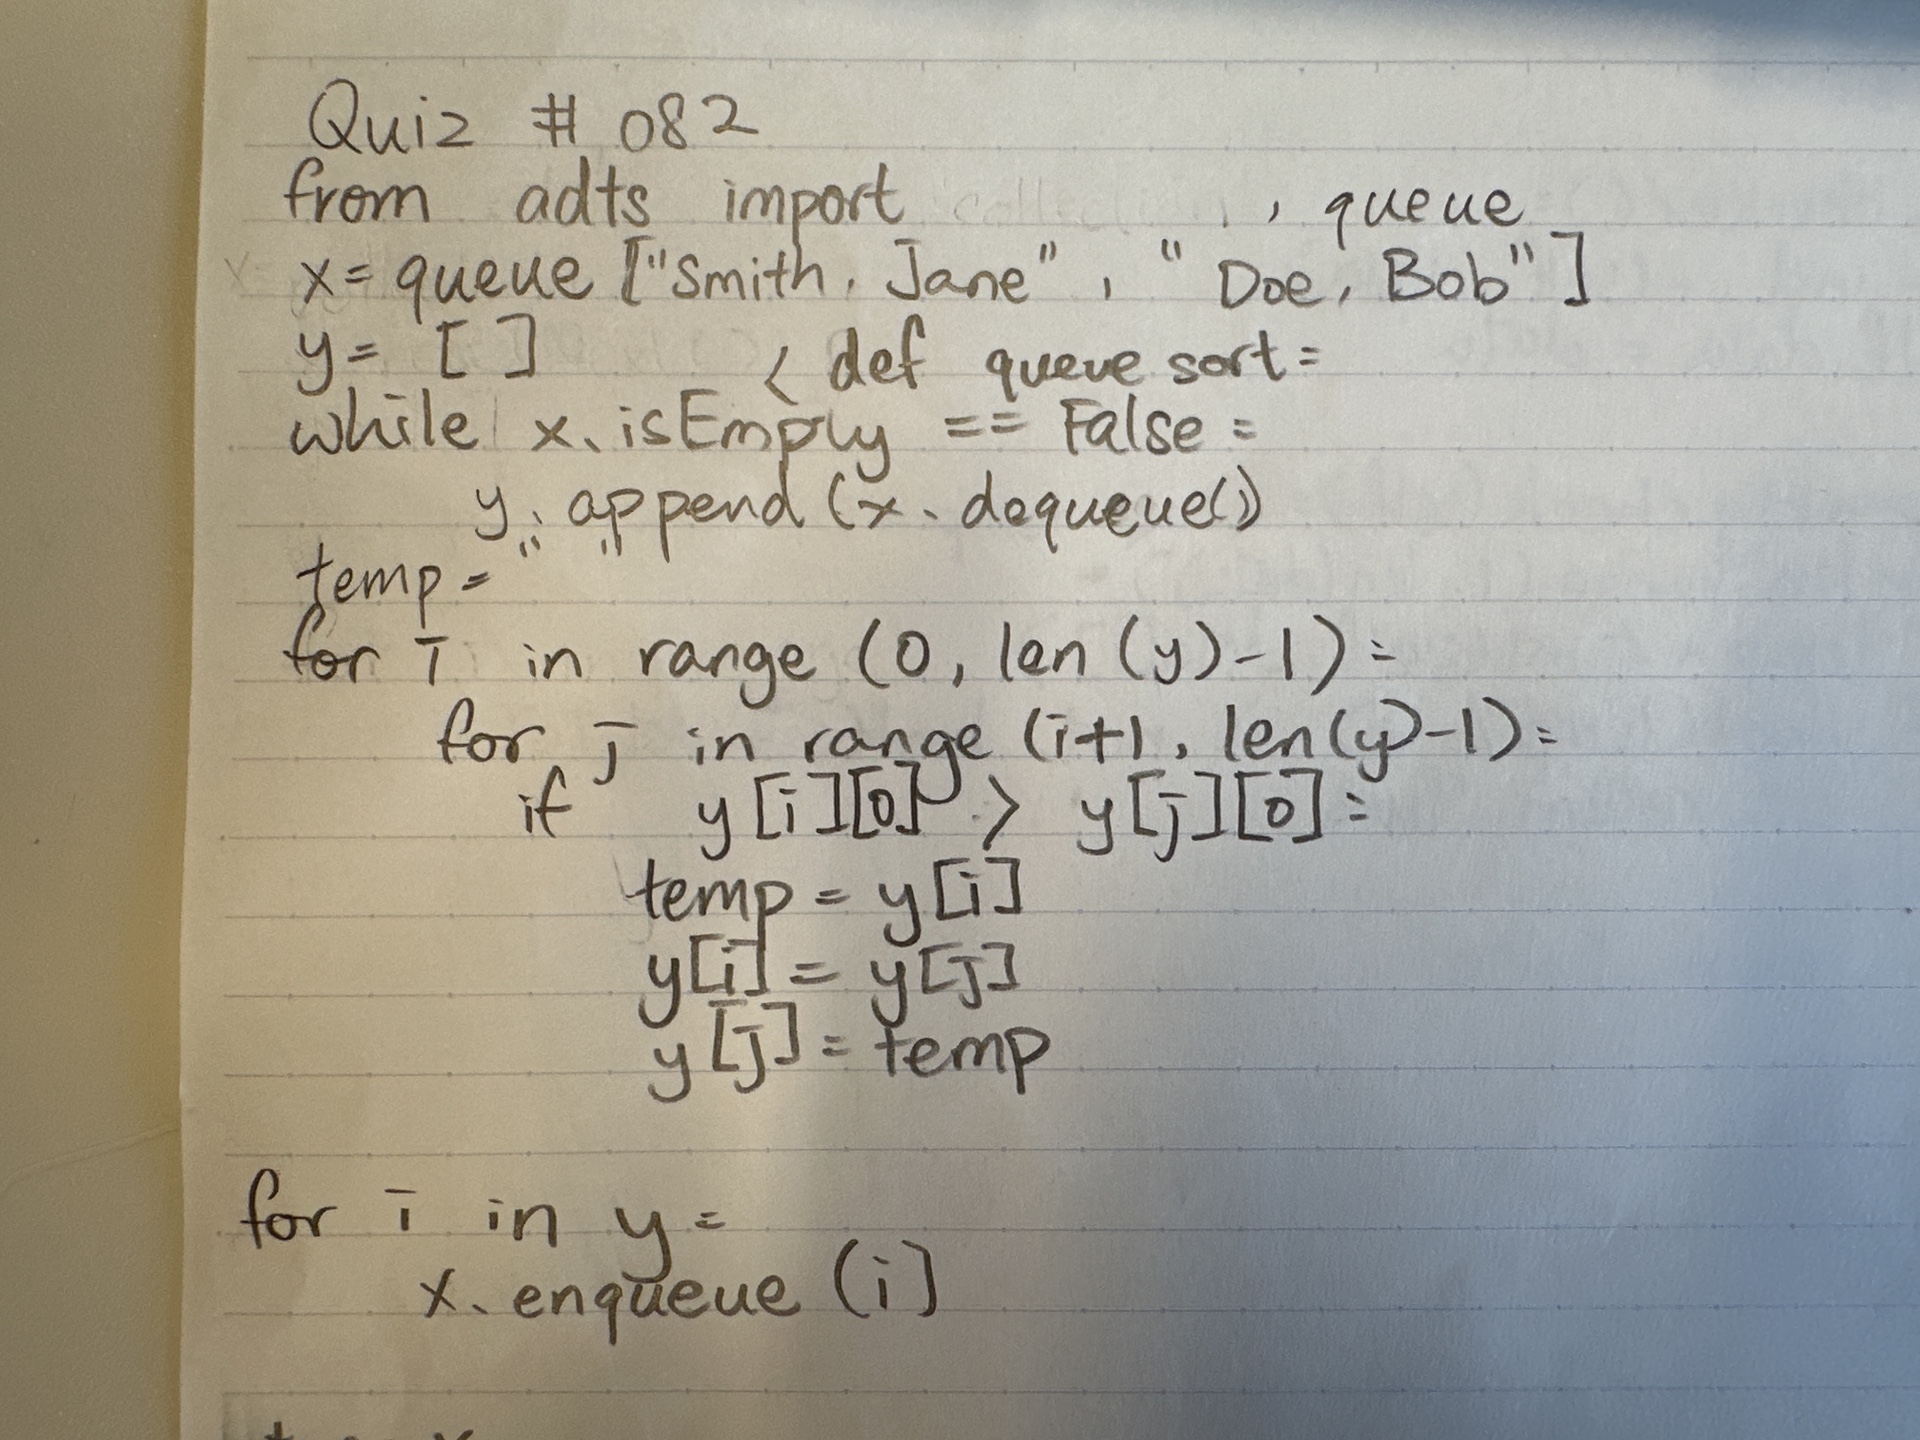 Quiz # 082
from adts import , queue
x= queue ["Smith, Jane", "Doe, Bob"]
y= [ ]
< def queue sort=
while x.isEmpty == False=
y.append (x.dequeue()
temp= " "
for i in range (0, len (y)-1)=
for j in range (i+1, len(y)-1)=
if y[i][0] > y[j][0]=
temp = y[i]
y[i] = y[j]
y[j] = temp
for i in y=
x.enqueue (i]